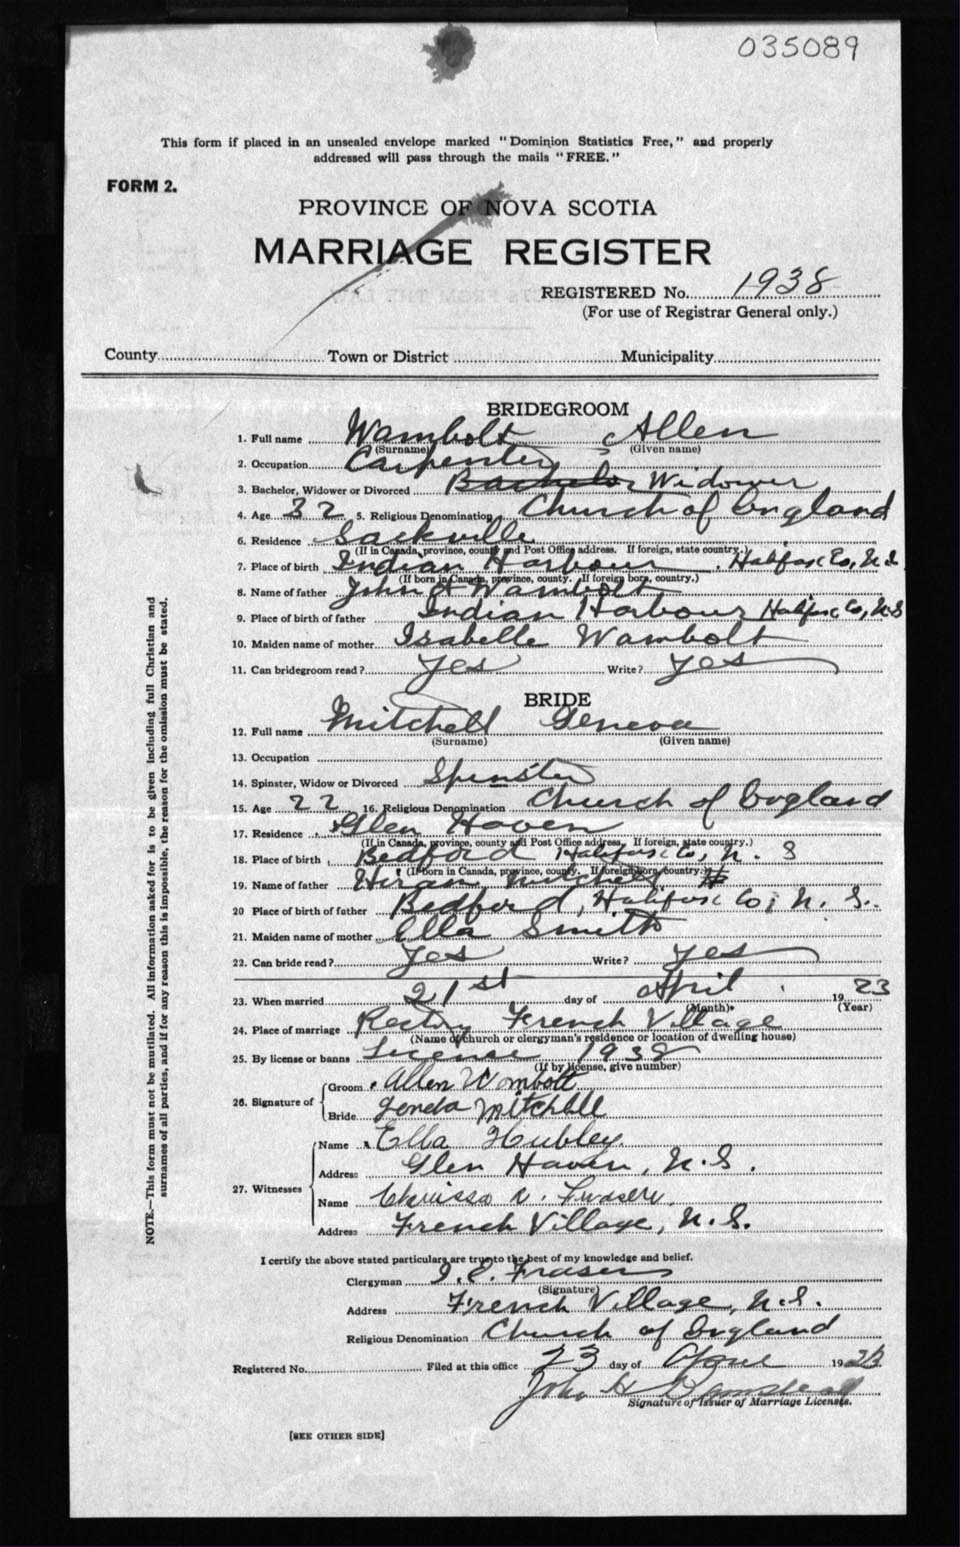 035089
This form if placed in an unsealed envelope marked "Dominion Statistics Free," and properly
addressed will pass through the mails "FREE."
FORM 2.
PROVINCE OF NOVA SCOTIA
MARRIAGE REGISTER
REGISTERED No. 1938
(For use of Registrar General only.)
County Town or District Municipality
BRIDEGROOM
1. Full name Wambolt, Allen
(Surname) (Given name)
2. Occupation Carpenter
3. Bachelor, Widower or Divorced Bachelor Widower
4. Age 32 5. Religious Denomination Church of England
6. Residence Sackville
(If in Canada, province, county and Post Office address. If foreign, state country.)
7. Place of birth Indian Harbour, Halifax Co, N.S.
(If born in Canada, province, county. If foreign born, country.)
8. Name of father John Wambolt
9. Place of birth of father Indian Harbour Halifax Co, N.S
10. Maiden name of mother Isabelle Wambolt
11. Can bridegroom read? yes Write? yes
BRIDE
12. Full name Mitchell Geneva
(Surname) (Given name)
13. Occupation
14. Spinster, Widow or Divorced Spinster
15. Age 22 16. Religious Denomination Church of England
17. Residence Glen Haven
(If in Canada, province, county and Post Office address. If foreign, state country.)
18. Place of birth Bedford Halifax Co, N. S
(If born in Canada, province, county. If foreign born, country.)
19. Name of father Hiram Mitchell
20 Place of birth of father Bedford, Halifax Co, N. S.
21. Maiden name of mother Ella Smith
22. Can bride read? yes Write? yes
23. When married 21st day of April 1923
(Month) (Year)
24. Place of marriage Rectory French Village
(Name of church or clergyman's residence or location of dwelling house)
25. By license or banns License 1938
(If by license, give number)
26. Signature of
Groom Allen Wombolt
Bride Geneva Mitchell
27. Witnesses
Name Ella Hubley
Address Glen Haven, N.S.
Name Fraser
Address French Village, N.S.
I certify the above stated particulars are true to the best of my knowledge and belief.
Clergyman Fraser
(Signature)
Address French Village, N.S.
Religious Denomination Church of England
Registered No. Filed at this office 23 day of April 1923
John H
Signature of Issuer of Marriage Licenses.
[SEE OTHER SIDE]
NOTE.—This form must not be mutilated. All information asked for is to be given including full Christian and
surnames of all parties, and if for any reason this is impossible, the reason for the omission must be stated.